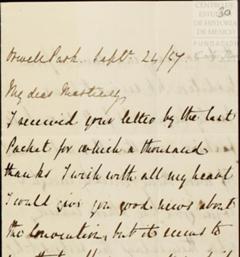 CENTRO DE
ESTUDIOS
DE HISTORIA
DE MEXICO
FUNDACIÓN
30
Orwell Park. Sept. 24/67
My dear
I received your letter by the last
Packet for which a thousand
thanks I wish with all my heart
I could give you good news about
the Convention, but it seems to